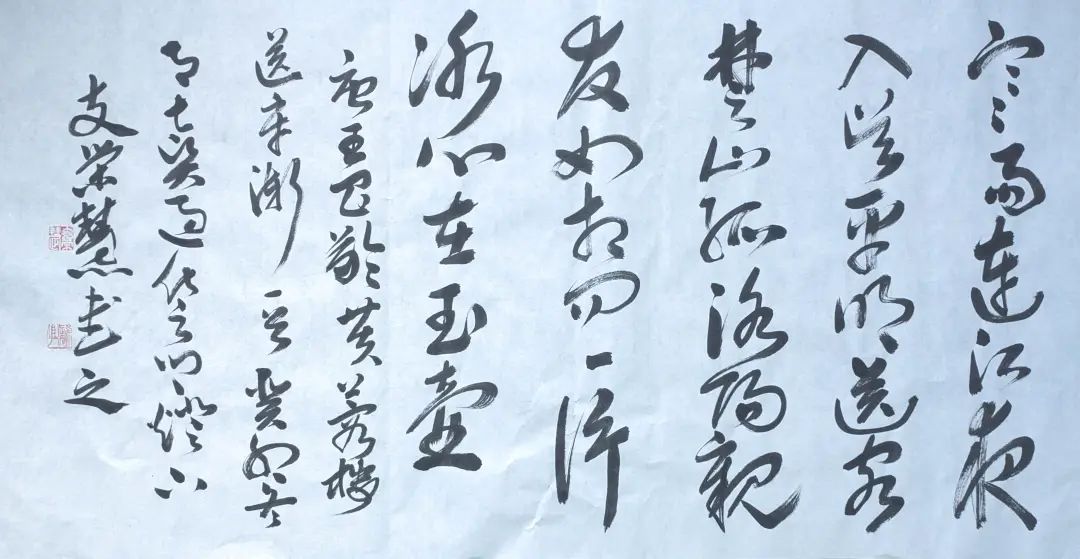 寒雨連江夜
入吳平明送客
楚山孤洛陽親
友如相問一片
冰心在玉壺
唐王昌齡芙蓉樓
送辛漸癸卯冬
燈下
支榮慧書之